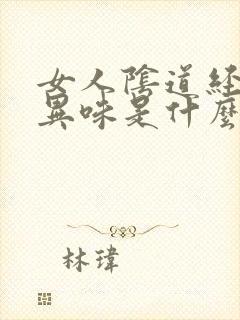 女人陰道経
異味是什麼
林瑋